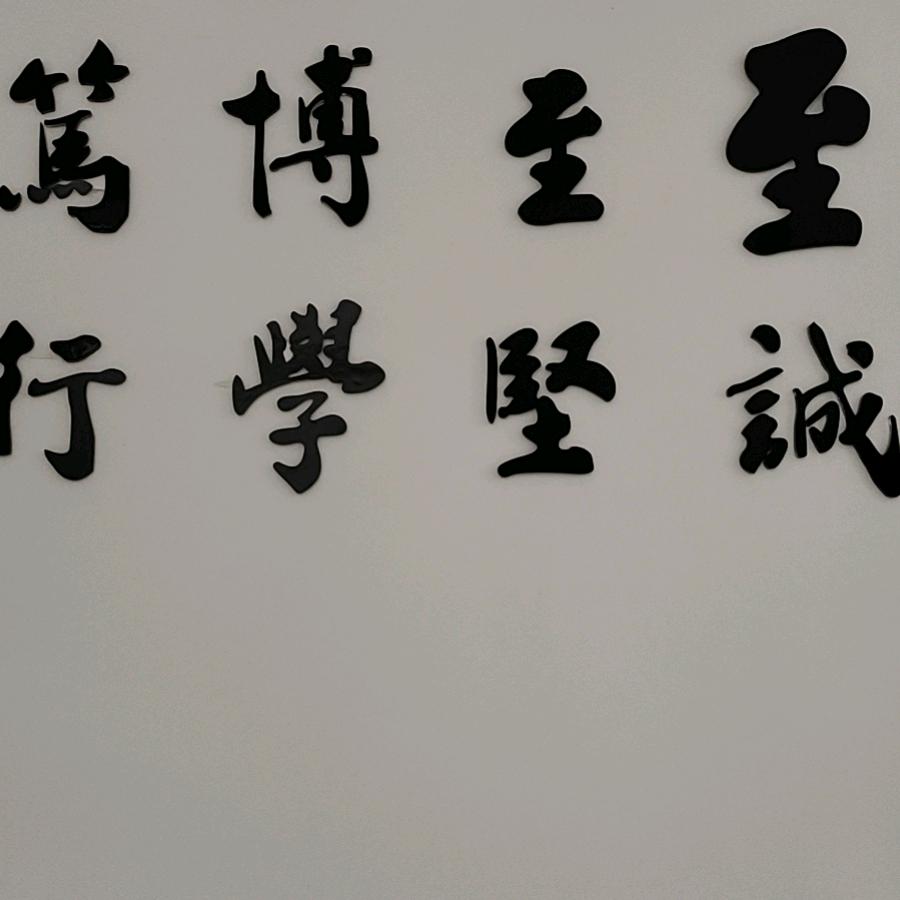 至誠
至堅
博學
篤行